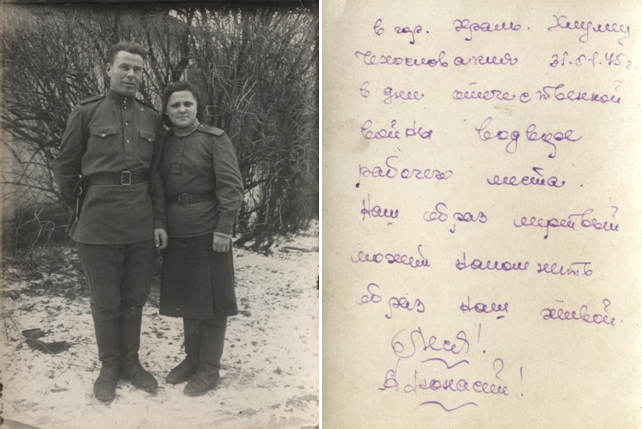 в гор. Краль. Хлумец
Чехословакия 31.01.45 г.
в дни отечественной
войны во дворе
рабочего места.
Наш образ мертвый
может напомнить
образ наш живой.
Леся!
Афонасий!